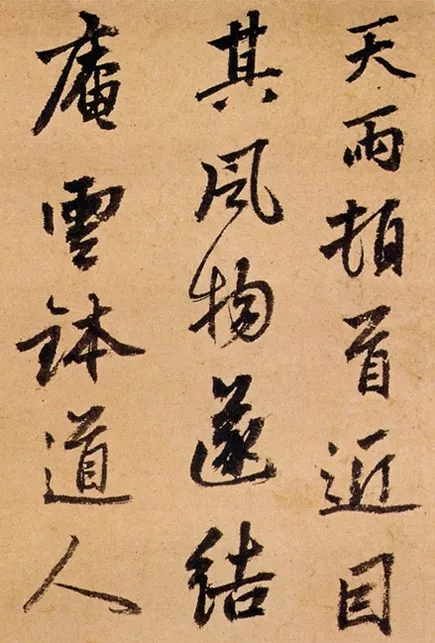 天雨頓首近目
其風物遂結
庵雲鉢道人